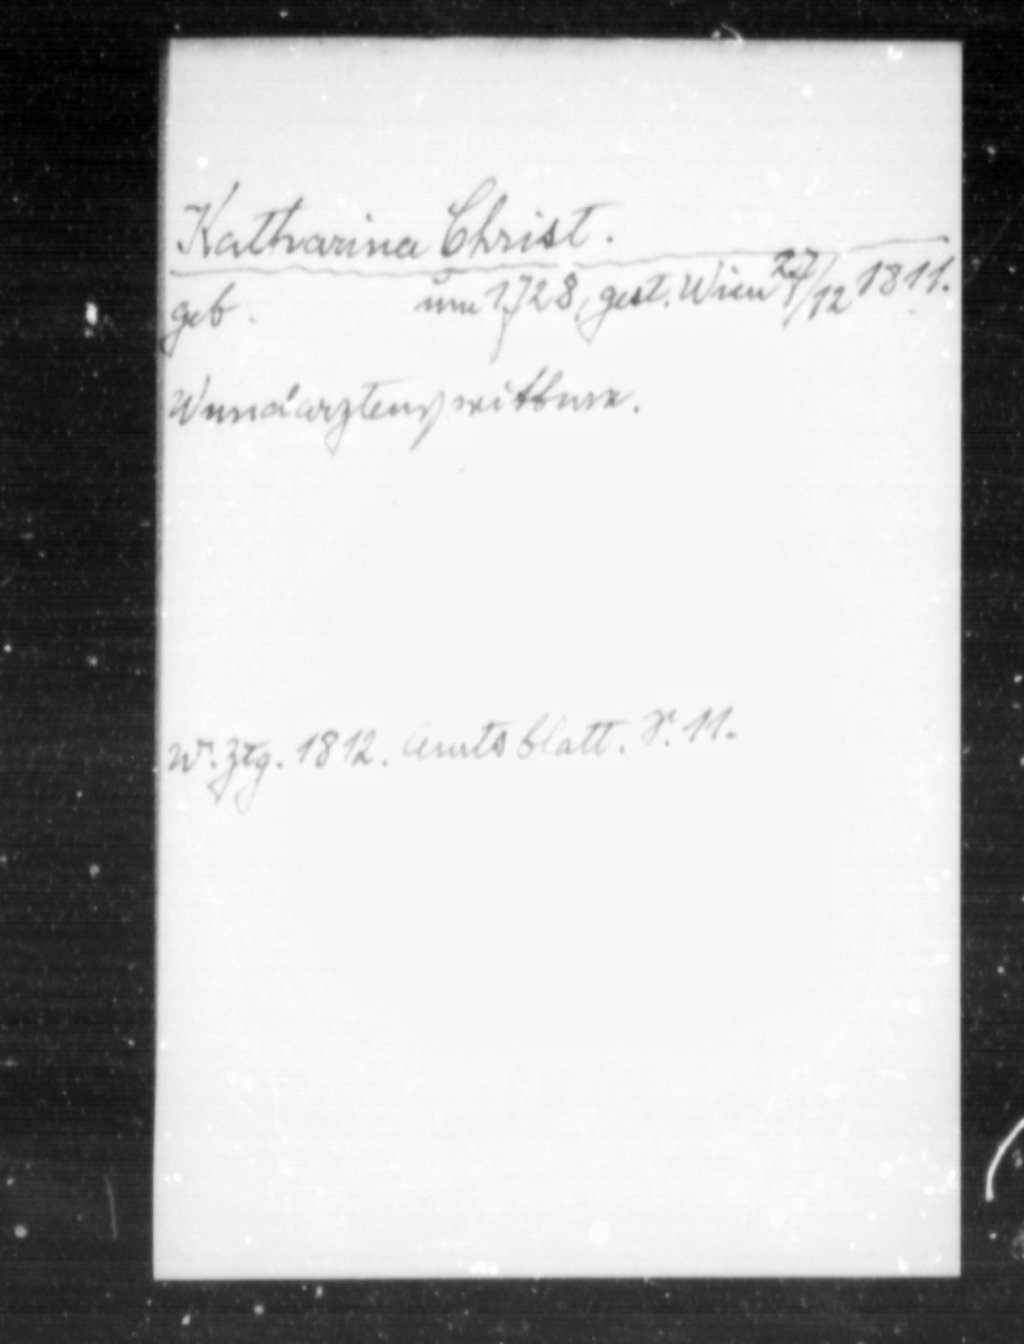 Katharina Christ.
geb. um 1728, gest. Wien 27/12 1811.
Wundarztens
Wr. Ztg. 1812. Amtsblatt. S. 11.